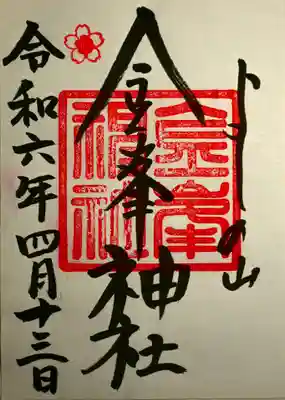 よしの山
金峯神社
金峯
神社
令和六年四月十三日